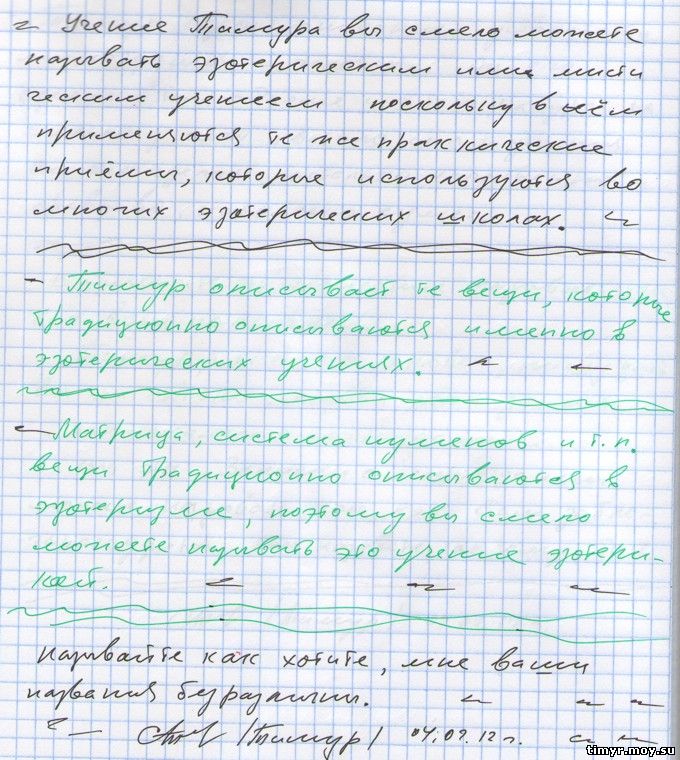 Учение Тимура вы смело можете
называть эзотерическим или мисти
ческим учением поскольку в нём
применяются те же практические
приёмы, которые используются во
многих эзотерических школах.
– Тимур описывает те вещи, которые
традиционно описываются именно в
эзотерических учениях.
– Матрица, система нуменов и т.п.
вещи традиционно описываются в
эзотеризме, поэтому вы смело
можете называть это учение эзотери-
кой.
называйте как хотите, мне ваши
названия безразличны.
/Тимур/ 04.09.12 г.
timyr.moy.su